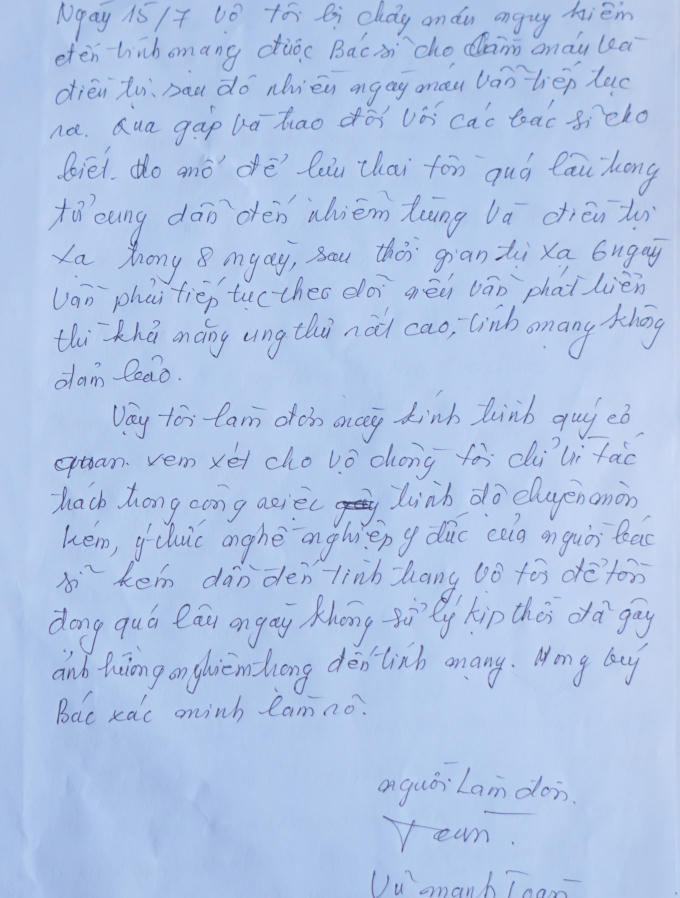 Ngày 15/7 vợ tôi bị chảy máu nguy hiểm
đến tính mạng được Bác sĩ cho cầm máu và
điều trị. sau đó nhiều ngày máu vẫn tiếp tục
ra. Qua gặp và trao đổi với các bác sĩ cho
biết. do mổ đẻ lưu thai tồn quá lâu trong
tử cung dẫn đến nhiễm trùng và điều trị
xạ trong 8 ngày, sau thời gian trị xạ 6 ngày
vẫn phải tiếp tục theo dõi nếu vẫn phát triển
thì khả năng ung thư rất cao, tính mạng không
đảm bảo.
Vậy tôi làm đơn này kính trình quý cơ
quan. xem xét cho vợ chồng tôi chỉ vì tắc
trách trong công việc trình độ chuyên môn
kém, ý thức nghề nghiệp y đức của người bác
sĩ kém dẫn đến tình trạng vợ tôi để tồn
đọng quá lâu ngày không sử lý kịp thời đã gây
ảnh hưởng nghiêm trọng đến tính mạng. Mong quý
Bác xác minh làm rõ.
người làm đơn.
Toan.
Vũ mạnh Toàn